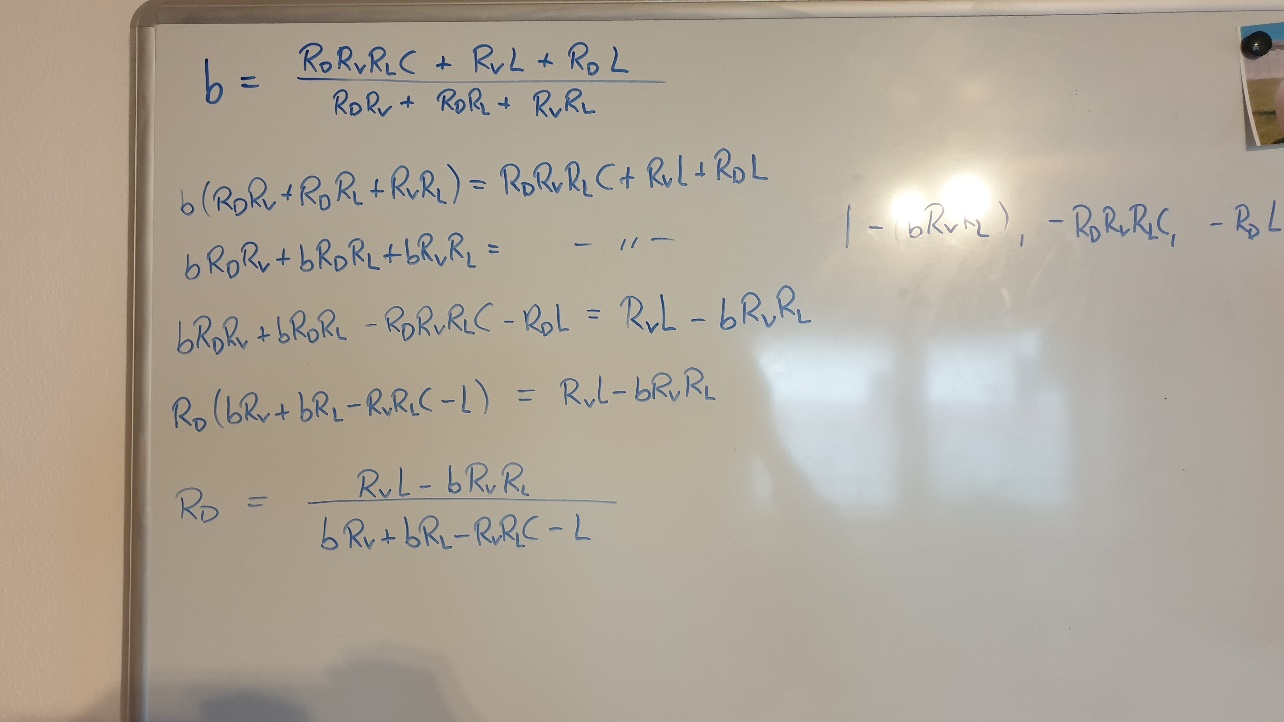 b = (R_D R_V R_L C + R_V L + R_D L) / (R_D R_V + R_D R_L + R_V R_L)
b(R_D R_V + R_D R_L + R_V R_L) = R_D R_V R_L C + R_V L + R_D L
b R_D R_V + b R_D R_L + b R_V R_L = - " - | - (b R_V R_L), - R_D R_V R_L C, - R_D L
b R_D R_V + b R_D R_L - R_D R_V R_L C - R_D L = R_V L - b R_V R_L
R_D (b R_V + b R_L - R_V R_L C - L) = R_V L - b R_V R_L
R_D = (R_V L - b R_V R_L) / (b R_V + b R_L - R_V R_L C - L)